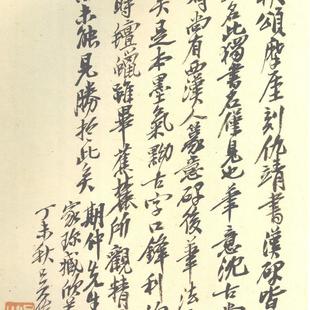 頌摩崖刻仇靖書漢碑皆
名此獨書名僅見也筆意沈古
時尚有西漢人篆意碑後筆法
矣是本墨氣黝古字口鋒利
時氊蠟雖畢所觀精
未能見勝於此矣
期仲先生
家珍藏欣
丁未秋吳